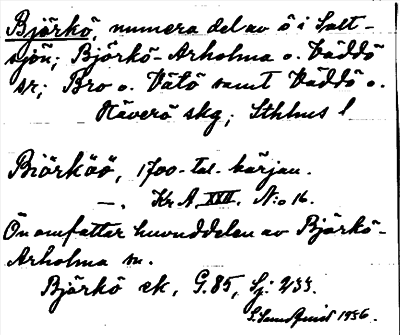 Björkö, numera del av ö i Salt-
sjön; Björkö-Arholma o. Väddö
sr; Bro o. Vätö samt Väddö o.
Häverö skg; Sthlms l
Biörköö, 1700-tal. början.
—. Kr A. XXII. N:o 16.
Ön omfattar huvuddelen av Björkö-
Arholma sn.
Björkö ek, G.85, Sj: 233.
1936.